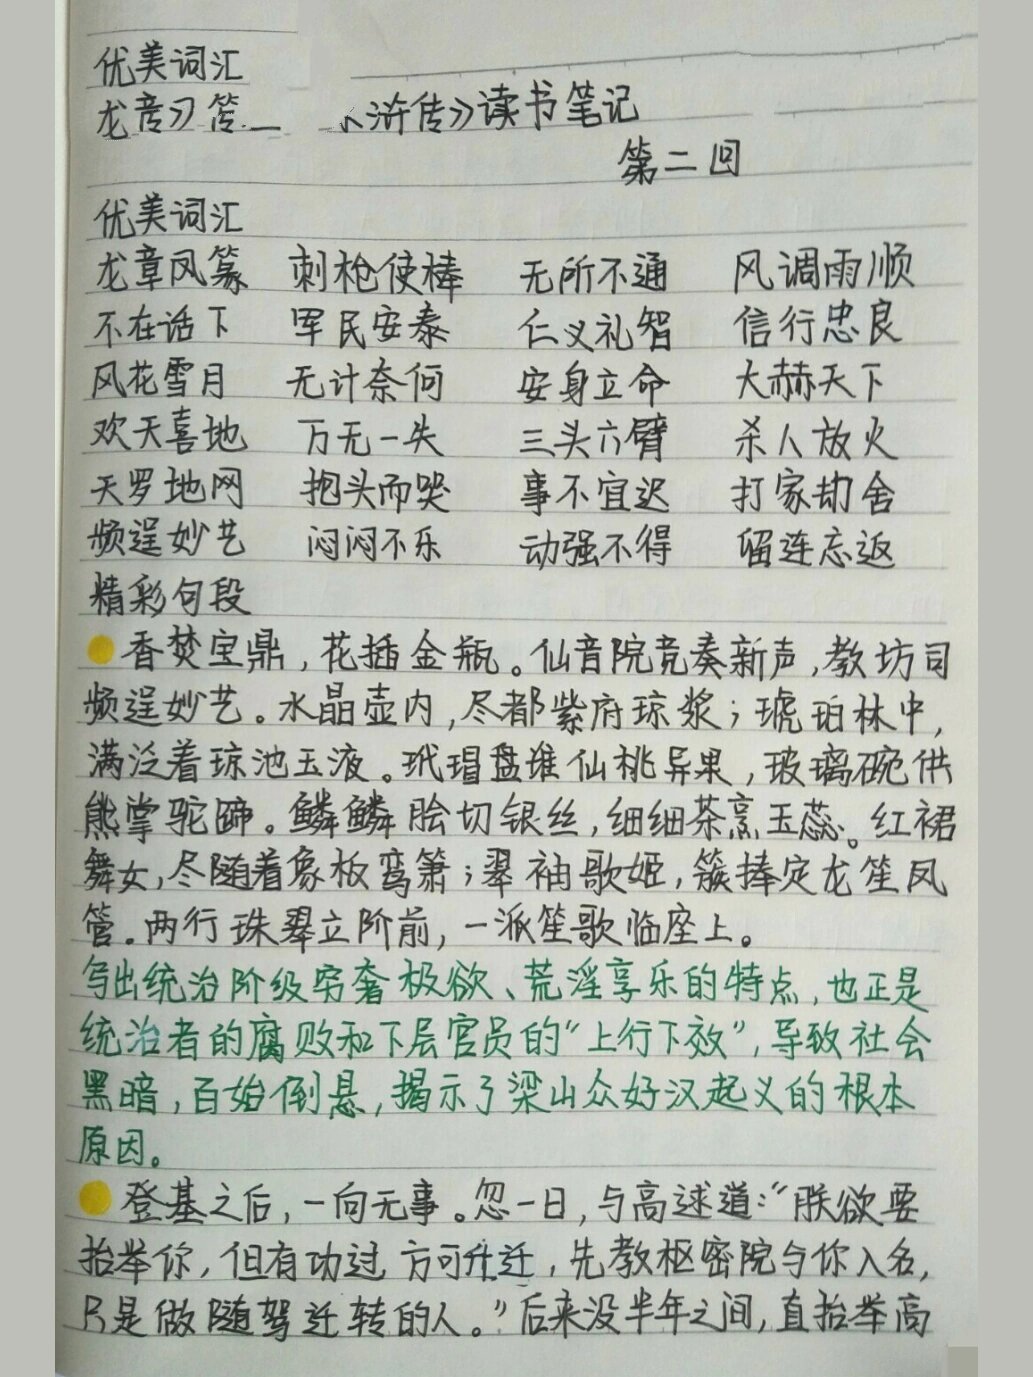 优美词汇
龙章
浒传》读书笔记
第二回
优美词汇
龙章凤篆 刺枪使棒 无所不通 风调雨顺
不在话下 军民安泰 仁义礼智 信行忠良
风花雪月 无计奈何 安身立命 大赫天下
欢天喜地 万无一失 三头六臂 杀人放火
天罗地网 抱头而哭 事不宜迟 打家劫舍
频逞妙艺 闷闷不乐 动强不得 留连忘返
精彩句段
香焚宝鼎,花插金瓶。仙音院竞奏新声,教坊司
频逞妙艺。水晶壶内,尽都紫府琼浆;琥珀林中,
满泛着琼池玉液。玳瑁盘堆仙桃异果,玻璃碗供
熊掌驼蹄。鳞鳞脍切银丝,细细茶烹玉蕊。红裙
舞女,尽随着象板鸾箫;翠袖歌姬,簇捧定龙笙凤
管。两行珠翠立阶前,一派笙歌临座上。
写出统治阶级穷奢极欲、荒淫享乐的特点,也正是
统治者的腐败和下层官员的“上行下效”,导致社会
黑暗,百始倒悬,揭示了梁山众好汉起义的根本
原因。
登基之后,一向无事。忽一日,与高逑道:“朕欲要
抬举你,但有功过方可升迁,先教枢密院与你入名,
只是做随驾迁转的人。”后来没半年之间,直抬举高